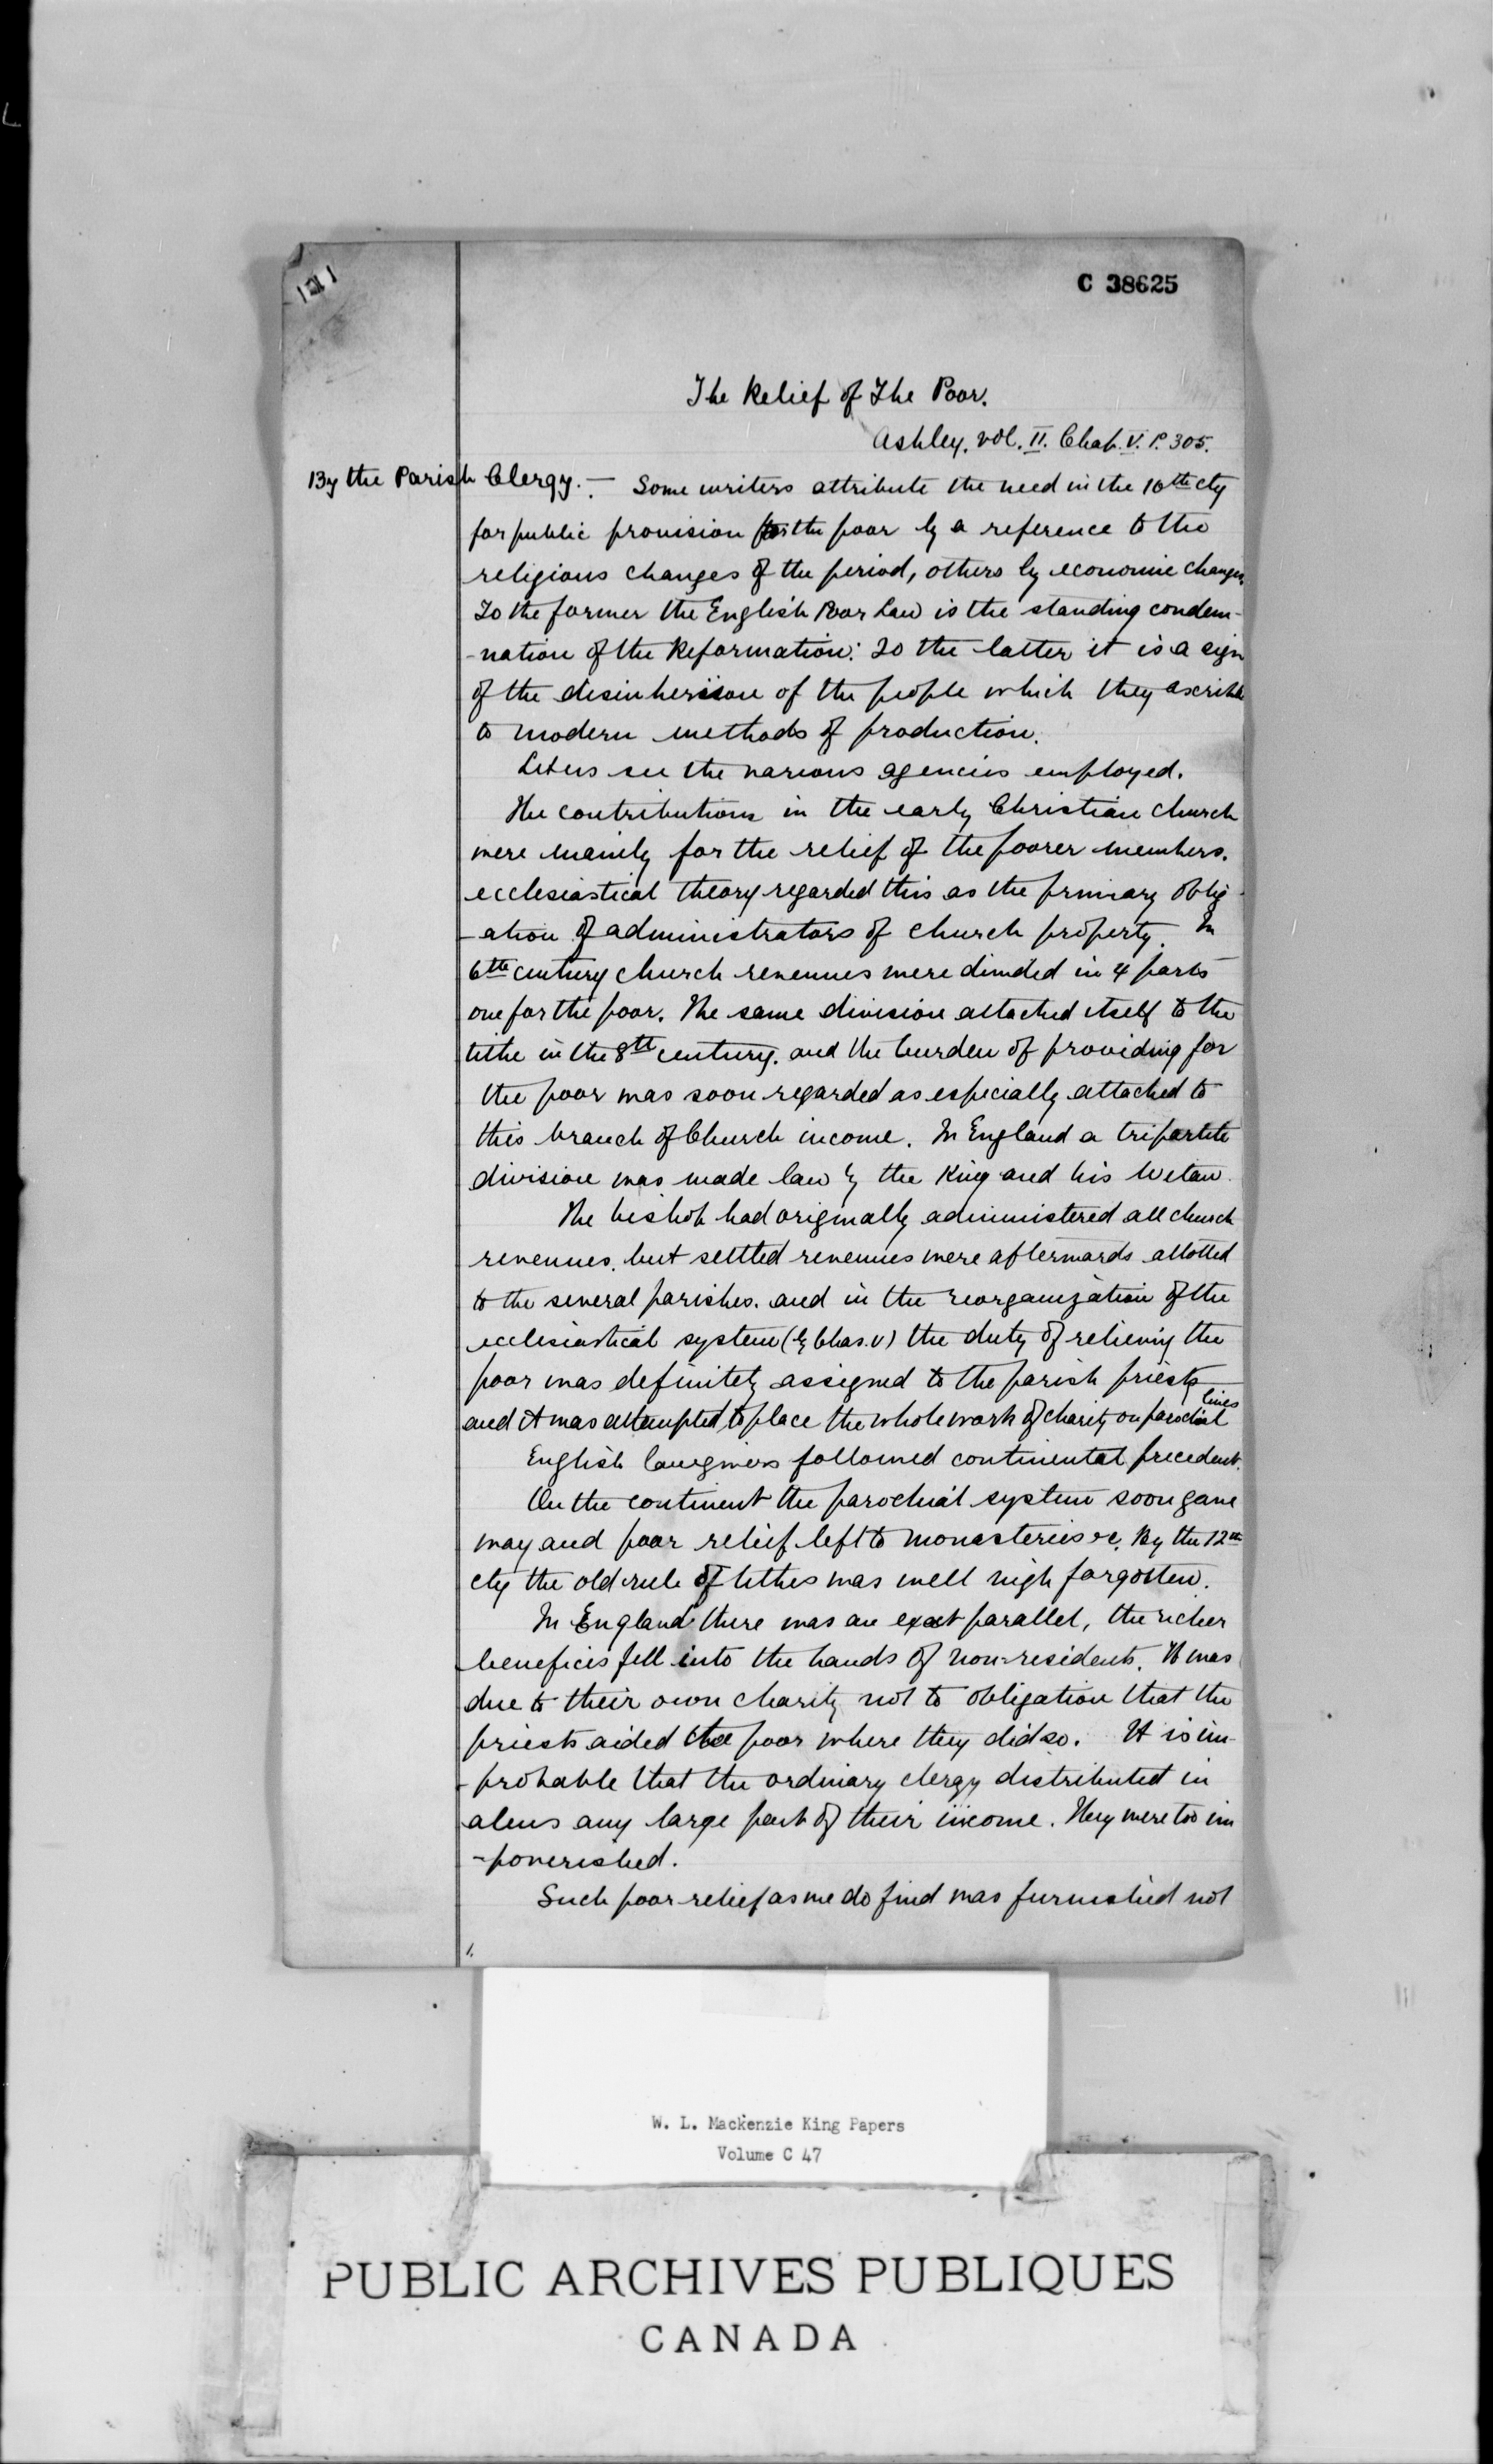 C 38625
The Relief of The Poor.
Ashley. Vol. II. Chap. V. P. 305.
By the Parish Clergy. :- Some writers attribute the need in the 16th cty
for public provision for the poor by a reference to the
religious changes of the period, others by economic changes.
To the former the English Poor Law is the standing condem-
-nation of the Reformation: To the latter it is a sign
of the disinherison of the people which they ascribe
to modern methods of production.
Let us see the various agencies employed.
The contributions in the early Christian church
were mainly for the relief of the poorer members.
ecclesiastical theory regarded this as the primary oblig-
-ation of administrators of church property. In
6th century church revenues were divided in 4 parts
one for the poor. The same division attached itself to the
tithe in the 8th century. and the burden of providing for
the poor was soon regarded as especially attached to
this branch of Church income. In England a tripartite
division was made law by the King and his Witan.
The bishop had originally administered all church
revenues. but settled revenues were afterwards allotted
to the several parishes. and in the reorganization of the
ecclesiastical system (by Chas. V) the duty of relieving the
poor was definitely assigned to the parish priests
and it was attempted to place the whole work of charity on parochial lines
English lawgivers followed continental precedent.
On the continent the parochial system soon gave
way and poor relief left to monasteries &c. By the 12th
cty the old rule of tithes was well nigh forgotten.
In England there was an exact parallel, the richer
benefices fell into the hands of non-residents. It was
due to their own charity not to obligation that the
priests aided the poor where they did so. It is im-
-probable that the ordinary clergy distributed in
alms any large part of their income. They were too im
-poverished.
Such poor relief as we do find was furnished not
1.
W. L. Mackenzie King Papers
Volume C 47
PUBLIC ARCHIVES PUBLIQUES
CANADA